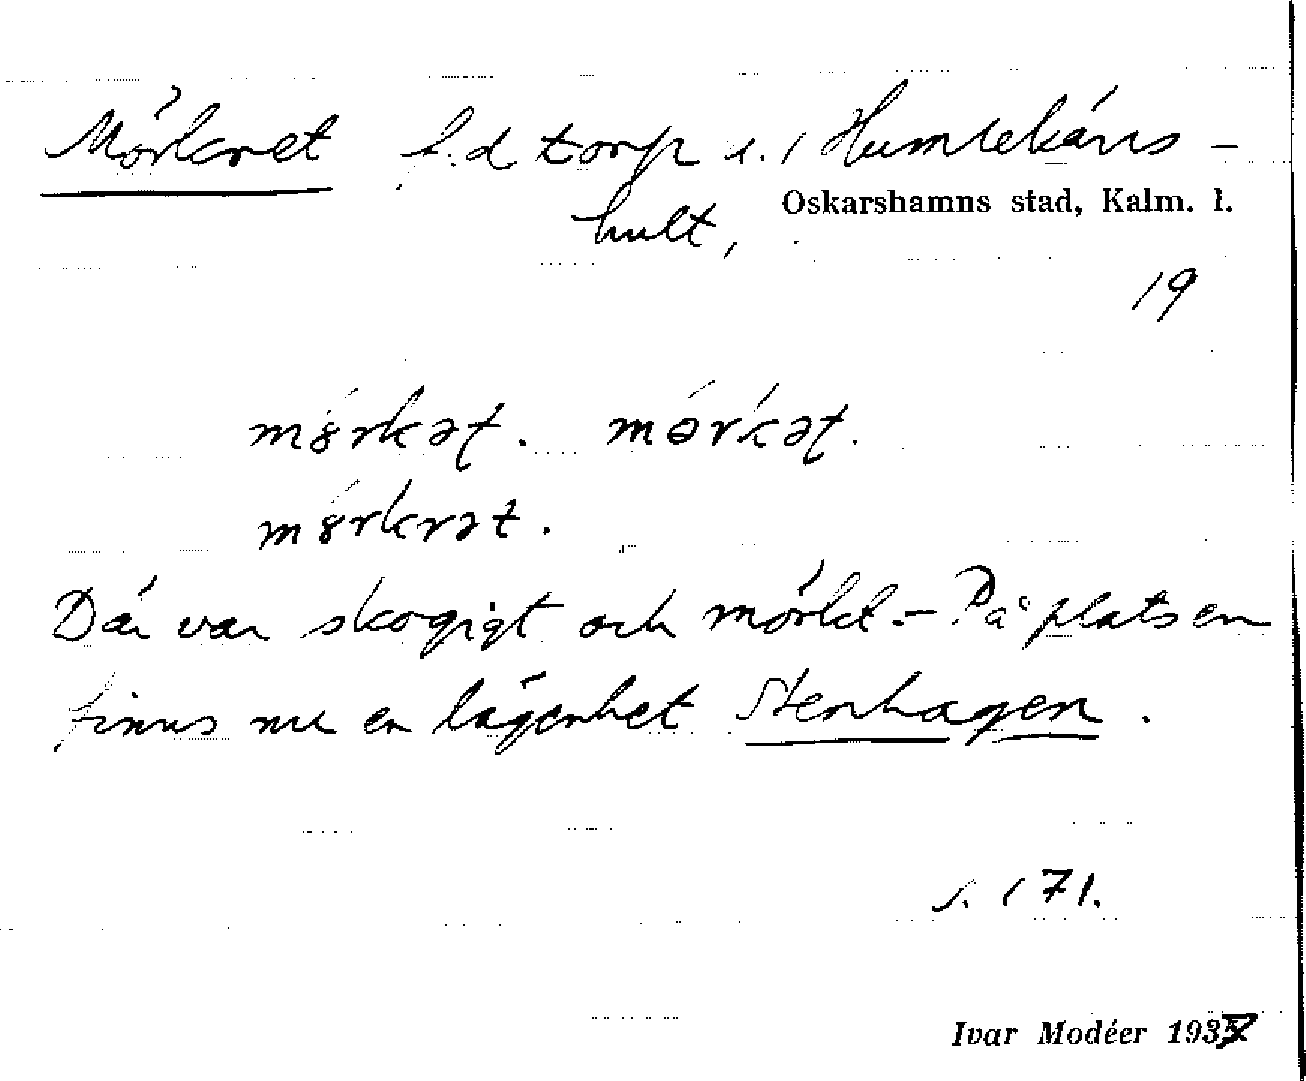 Mörkret f.d torp u. / Humlekärrs-
Oskarshamns stad, Kalm. l.
hult,
19
mørkət. mørkət.
mørkrət.
Där var skogigt och mörkt. – På platsen
finns nu en lägenhet Stenhagen.
s. 171.
Ivar Modéer 1937